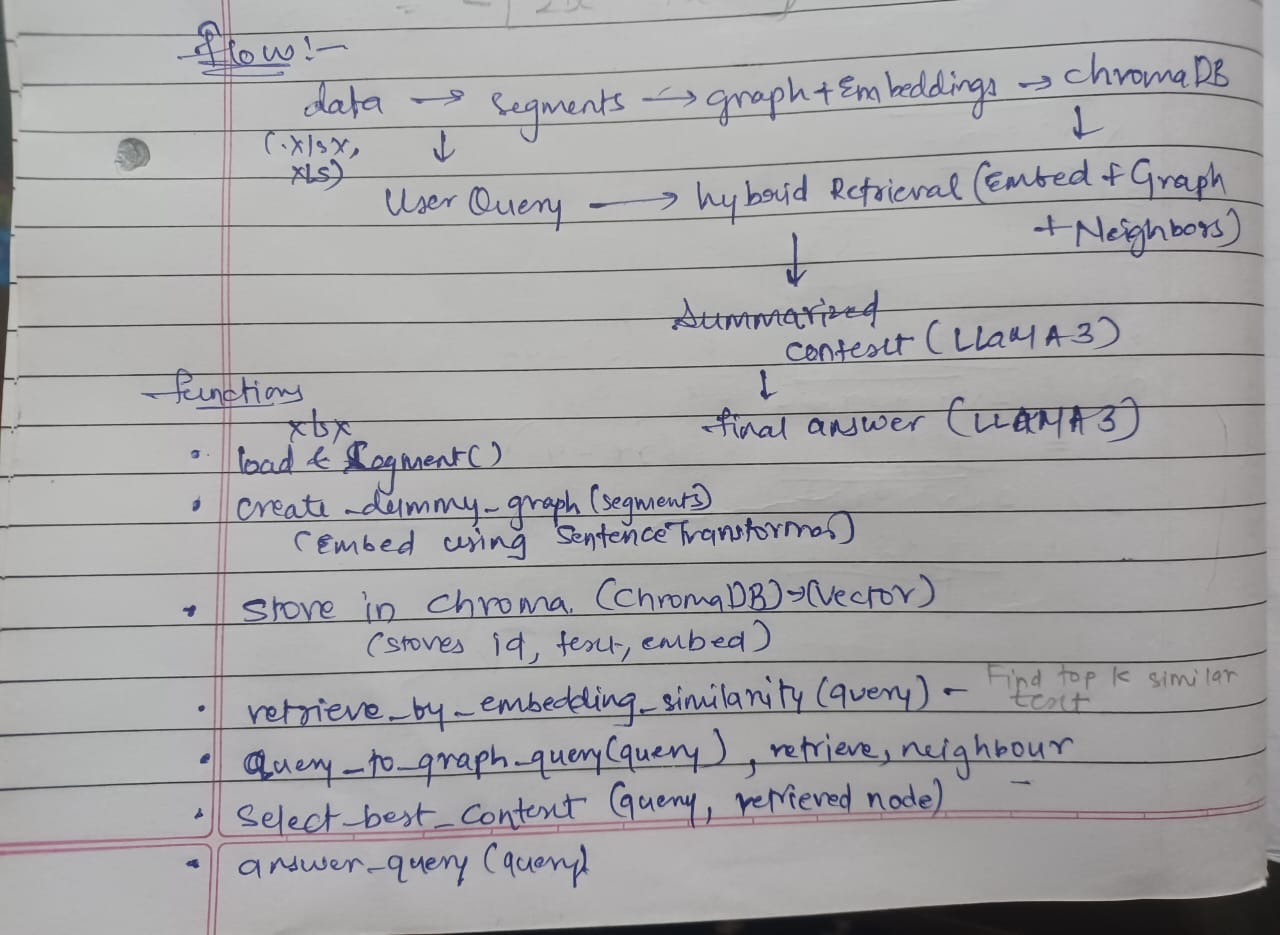 flow:-
data → segments → graph + Embeddings → chromaDB
(.xlsx, ↓ ↓
xls)
User Query → hybrid Retrieval (Embed + Graph
+ Neighbors)
↓
Summarized
context (LLaMA3)
↓
functions
final answer (LLAMA3)
xlsx
• load & Segment()
• create_dummy_graph(segments)
(Embed using SentenceTransformas)
• store in chroma. (ChromaDB)→(Vector)
(stores id, text, embed)
• retrieve_by_embedding_similarity(query) - Find top k similar
text
• Query_to_graph_query(query), retrieve, neighbour
• Select_best_context (query, retrieved node)
• answer_query (query)